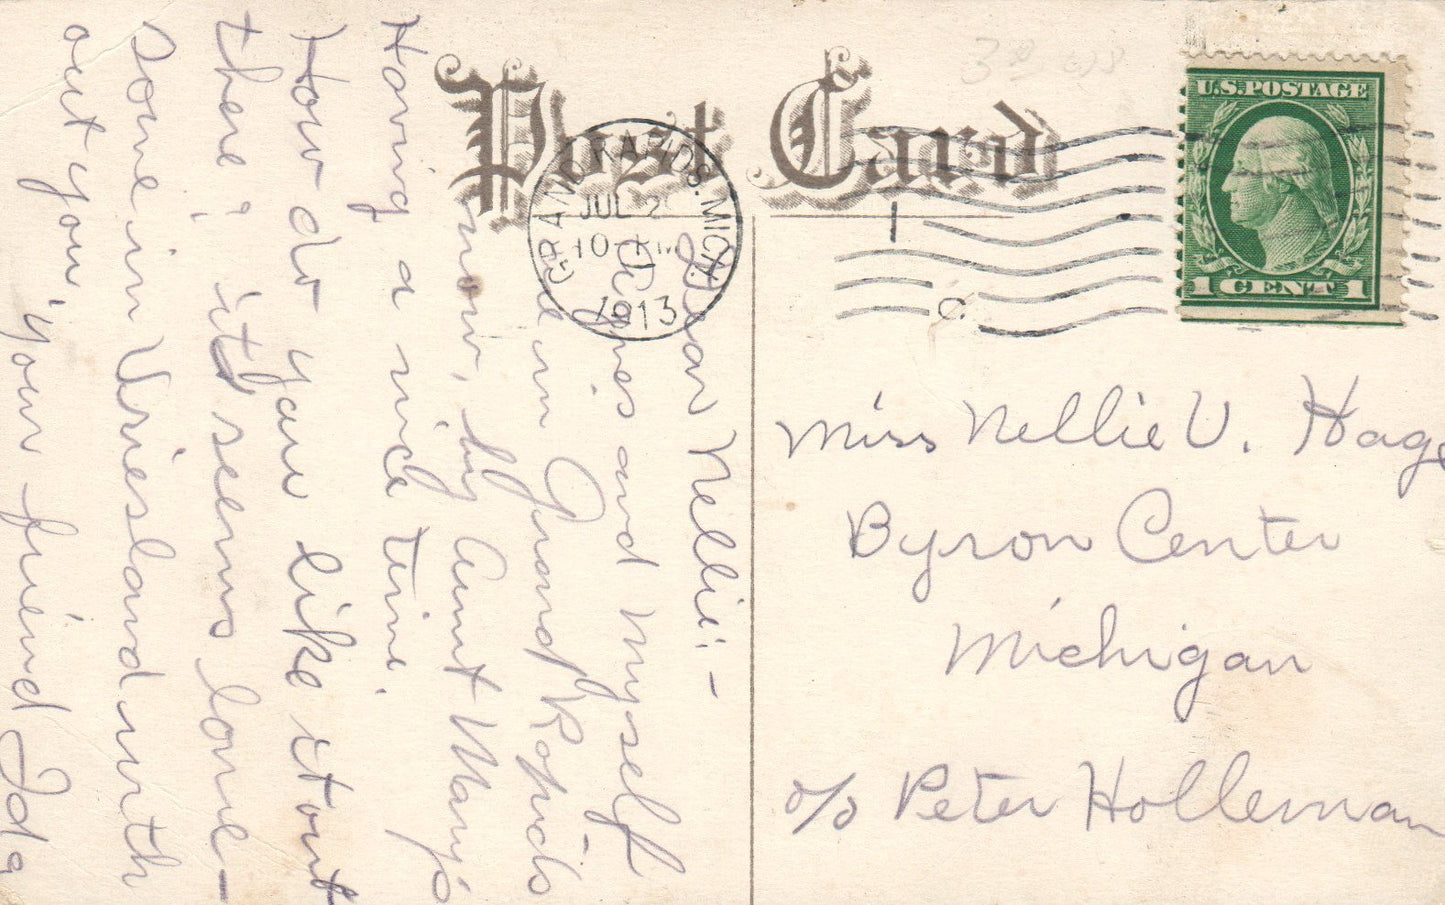 Post Card
GRAND RAPIDS. MICH.
JUL 2
10
1913
U.S. POSTAGE
1 CENT 1
Dear Nellie:-
Agnes and myself
are in Grand Rapids
now, by Aunt Mary's
Having a nice time.
How do you like it out
there? it seems lone-
some in Vriesland with
out you, your friend Ida
Miss Nellie V. Hage
Byron Center
Michigan
c/o Peter Holleman